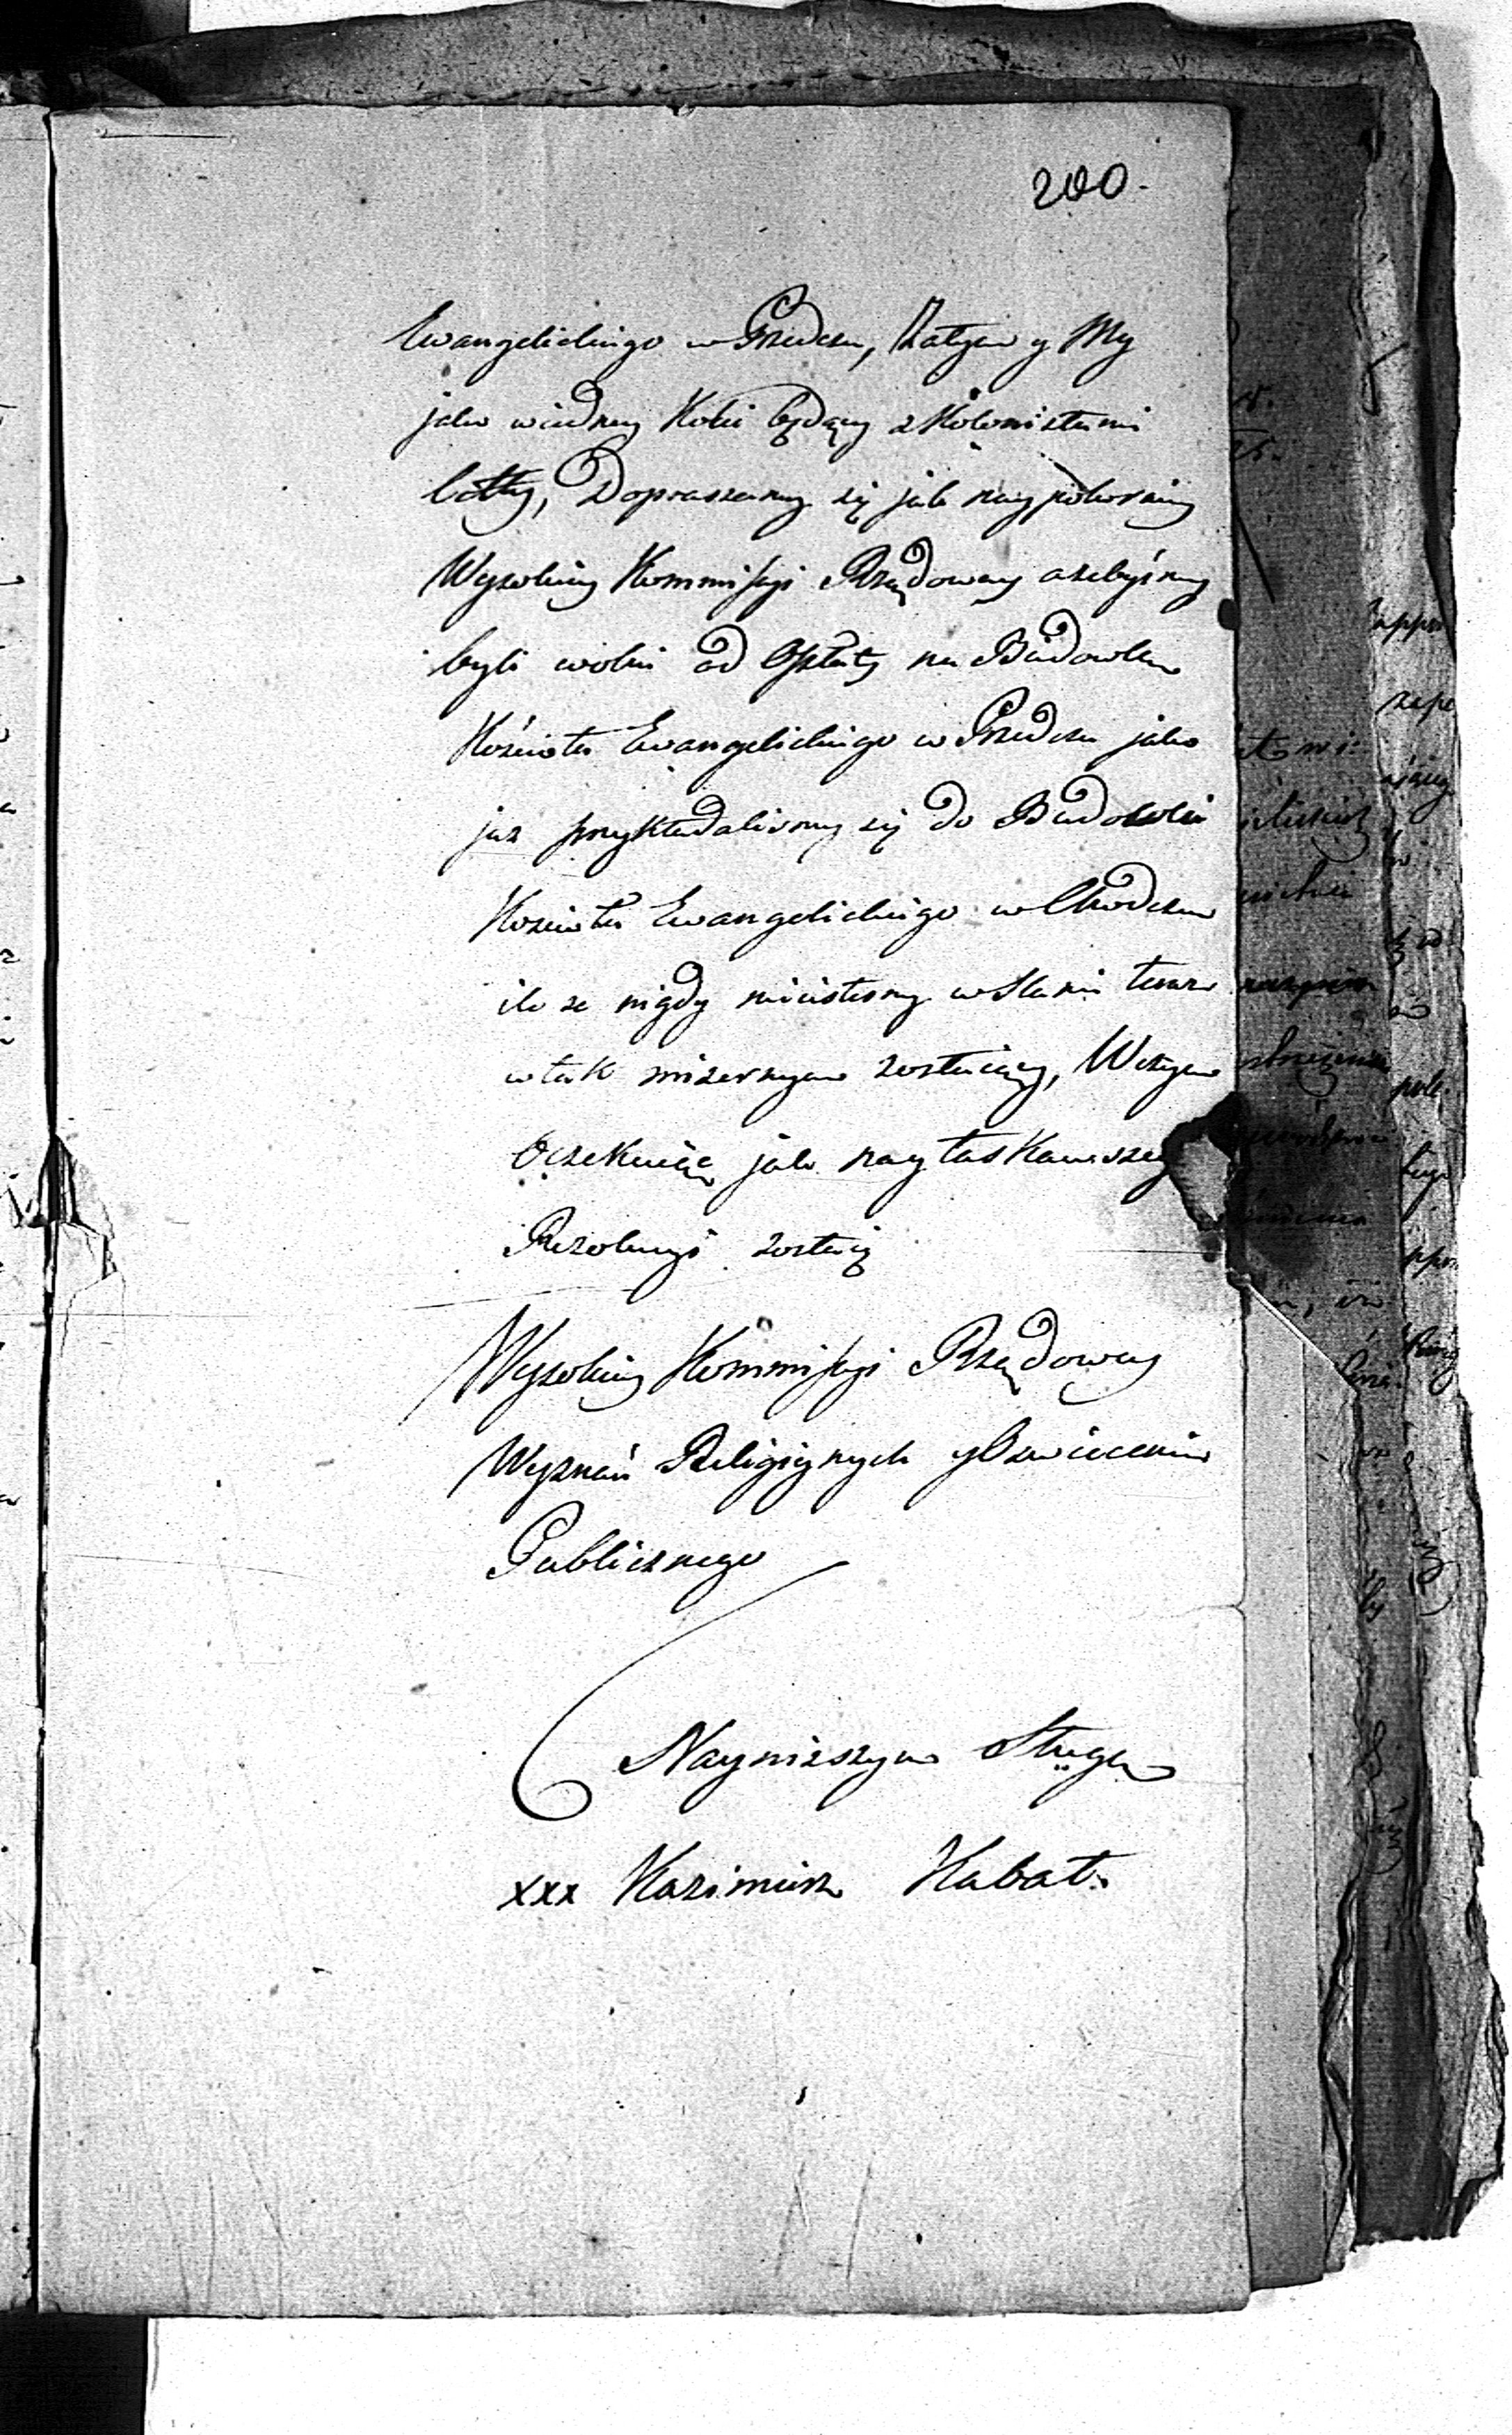 200.
Ewangelickiego w Przedczu, Zatym y My
jako w iedney Kolei będący z Kolonistami
Dopraszamy się jak naypokorniey
Wysokiey Kommissyi Rządowey ażebyśmy
byli wolni od Opłaty na Budowlę
Kościoła Ewangelickiego w Przedczu jako
juz przykładalismy się do Budowli
Koscioła Ewangelickiego w Chodczu
ile ze nigdy nieiestesmy w Stanie teraz
w tak mizernym zostaiący, W czym
Oczekuiąc jak nayłaskawszey
Rezolucyi zostaię
Wysokiey Kommissyi Rządowey
Wyznań Religiynych y Oswiecenia
Publicznego
Nayniższym Sługą
xxx Kazimierz Kabat.